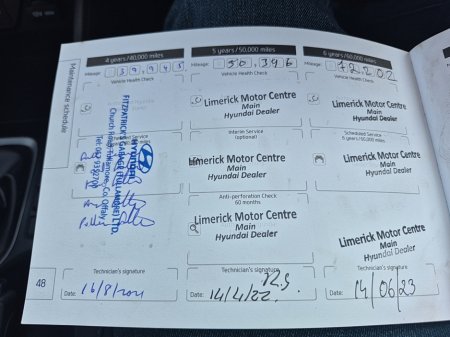 Maintenance schedule
4 years/40,000 miles
Mileage: 39,945
Vehicle Health Check
Scheduled Service
FITZPATRICK'S GARAGE (TULLAMORE) LTD.
HYUNDAI
Church Road, Tullamore, Co. Offaly
Technician's signature
Date: 16/8/2021
5 years/50,000 miles
Mileage: 50,396
Vehicle Health Check
Limerick Motor Centre
Main
Hyundai Dealer
Interim Service
(optional)
Limerick Motor Centre
Main
Hyundai Dealer
Anti-perforation Check
60 months
Limerick Motor Centre
Main
Hyundai Dealer
Technician's signature
Date: 14/4/22
6 years/60,000 miles
Mileage: 72,202
Vehicle Health Check
Limerick Motor Centre
Main
Hyundai Dealer
Scheduled Service
6 years/60,000 miles
Limerick Motor Centre
Main
Hyundai Dealer
Limerick Motor Centre
Main
Hyundai Dealer
Technician's signature
Date: 14/06/23
48